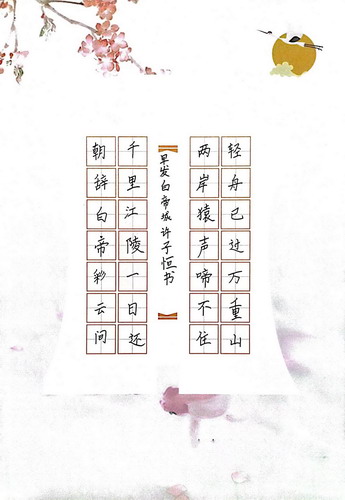 朝辞白帝彩云间
千里江陵一日还
早发白帝城许子恒书
两岸猿声啼不住
轻舟已过万重山